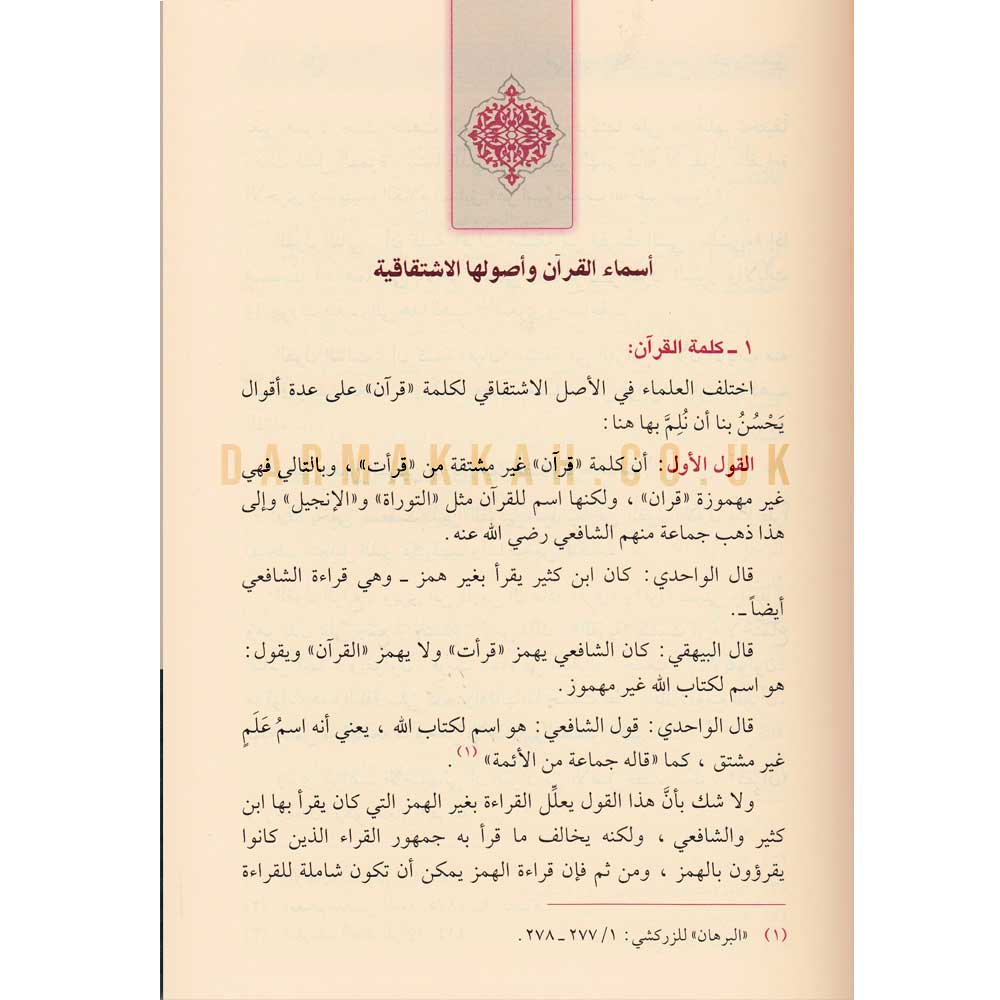 أسماء القرآن وأصولها الاشتقاقية
١ ـ كلمة القرآن:
اختلف العلماء في الأصل الاشتقاقي لكلمة «قرآن» على عدة أقوال
يَحْسُنُ بنا أن نُلِمَّ بها هنا:
DARMAKKAH.CO.UK
القول الأول: أن كلمة «قرآن» غير مشتقة من «قرأت» ، وبالتالي فهي
غير مهموزة «قران» ، ولكنها اسم للقرآن مثل «التوراة» و«الإنجيل» وإلى
هذا ذهب جماعة منهم الشافعي رضي الله عنه .
قال الواحدي: كان ابن كثير يقرأ بغير همز ـ وهي قراءة الشافعي
أيضاً ـ.
قال البيهقي: كان الشافعي يهمز «قرأت» ولا يهمز «القرآن» ويقول:
هو اسم لكتاب الله غير مهموز.
قال الواحدي: قول الشافعي: هو اسم لكتاب الله ، يعني أنه اسمُ عَلَمٍ
غير مشتق ، كما «قاله جماعة من الأئمة» (١) .
ولا شك بأنَّ هذا القول يعلِّل القراءة بغير الهمز التي كان يقرأ بها ابن
كثير والشافعي ، ولكنه يخالف ما قرأ به جمهور القراء الذين كانوا
يقرؤون بالهمز ، ومن ثم فإن قراءة الهمز يمكن أن تكون شاملة للقراءة
(١) «البرهان» للزركشي: ١/ ٢٧٧ ـ ٢٧٨ .